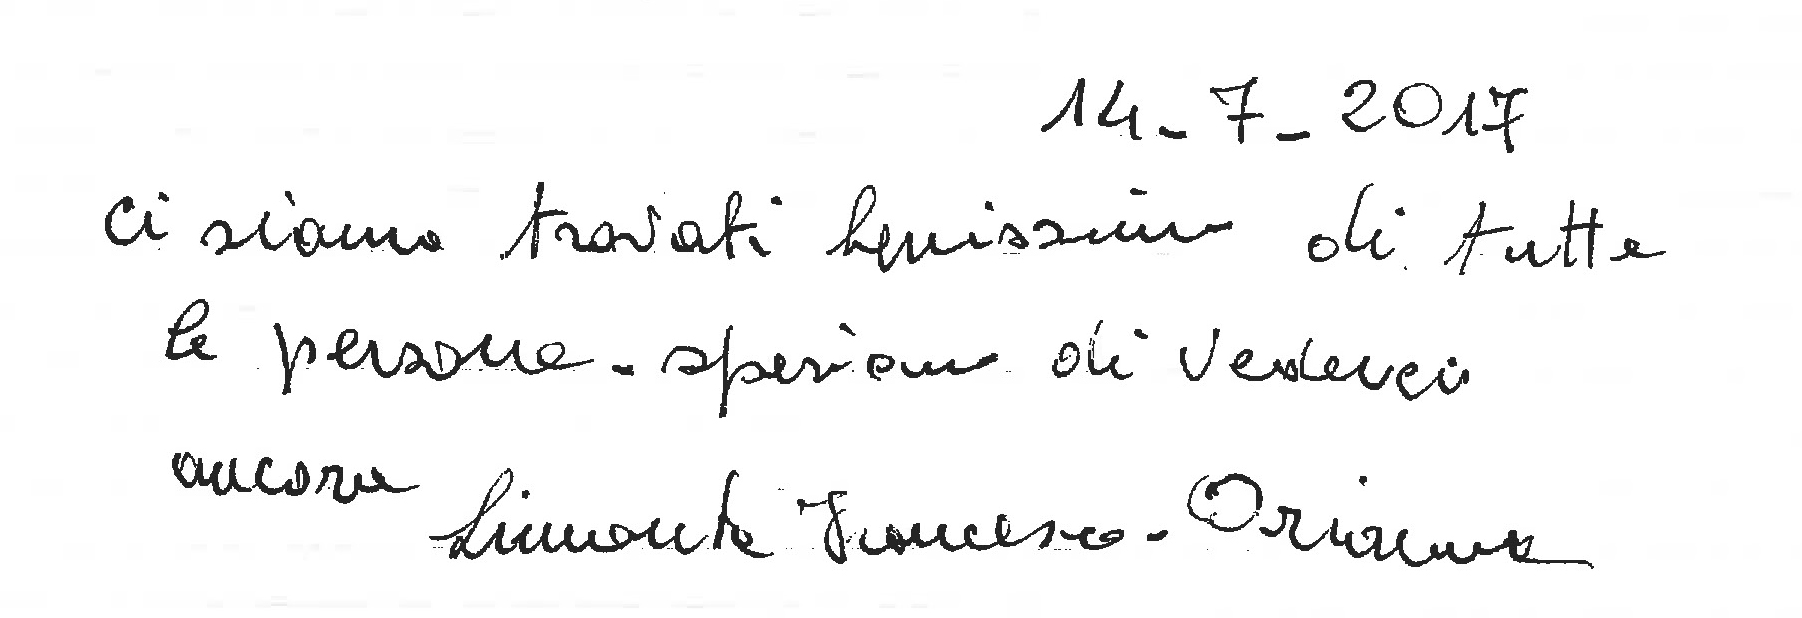 14-7-2017
ci siamo trovati benissimo di tutte
le persone - speriamo di vederci
ancora
Limonta Francesco - Orianna